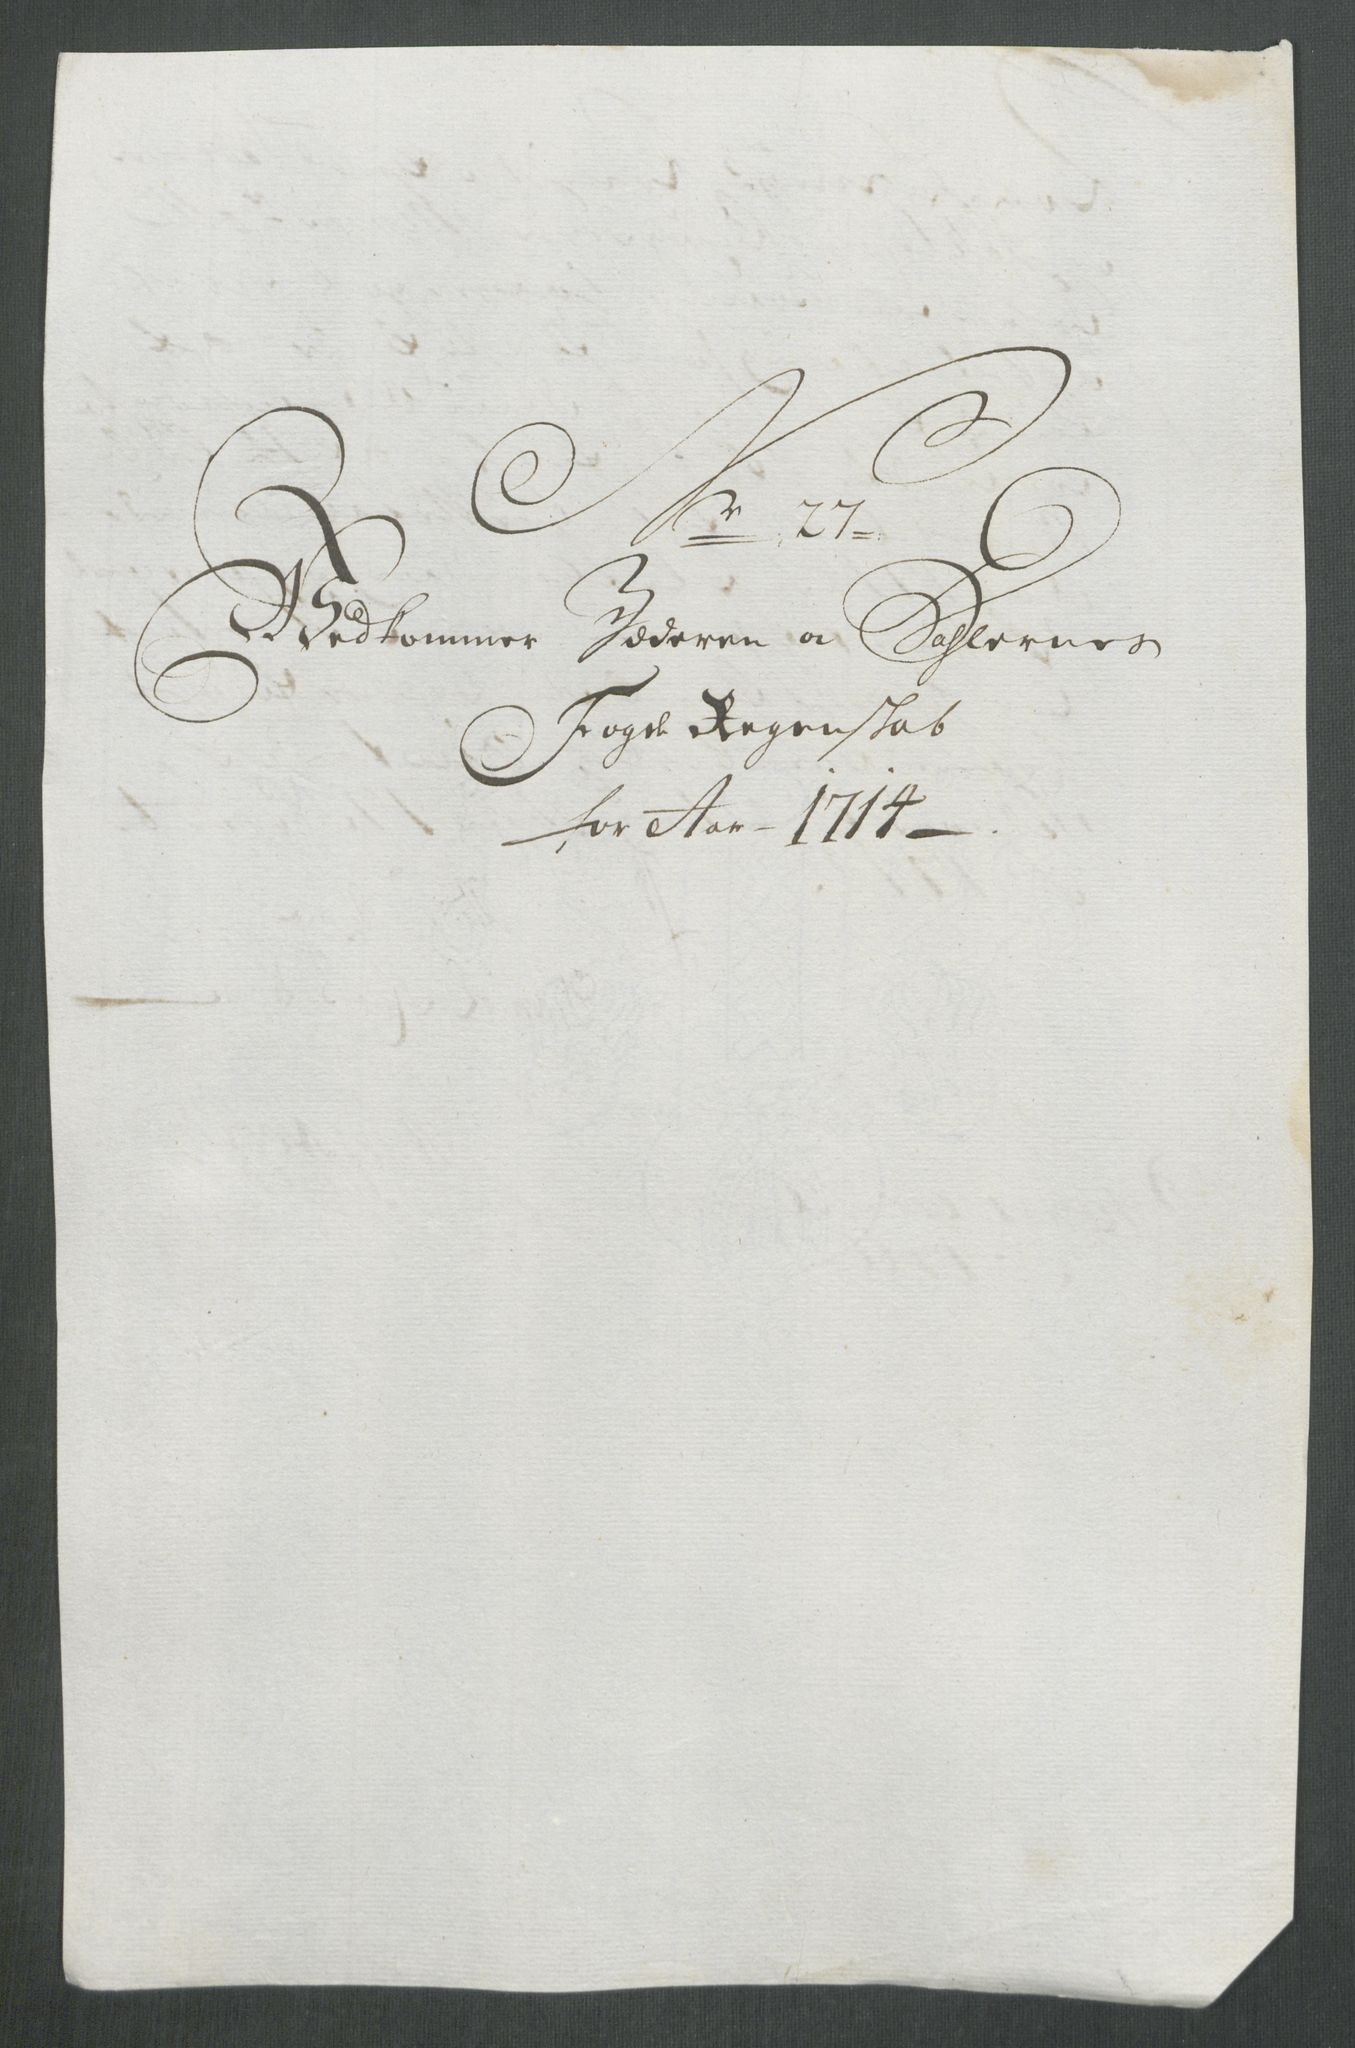 Nr 27
Vedkommer Jæderen a Dahlernes
Fogde Regenskab
for Aar 1714